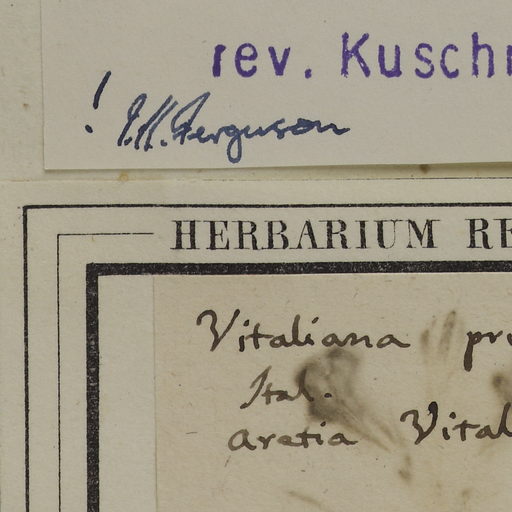 rev. Kusch
! I.K. Ferguson
HERBARIUM RE
Vitaliana pr
Ital.
Aretia Vital